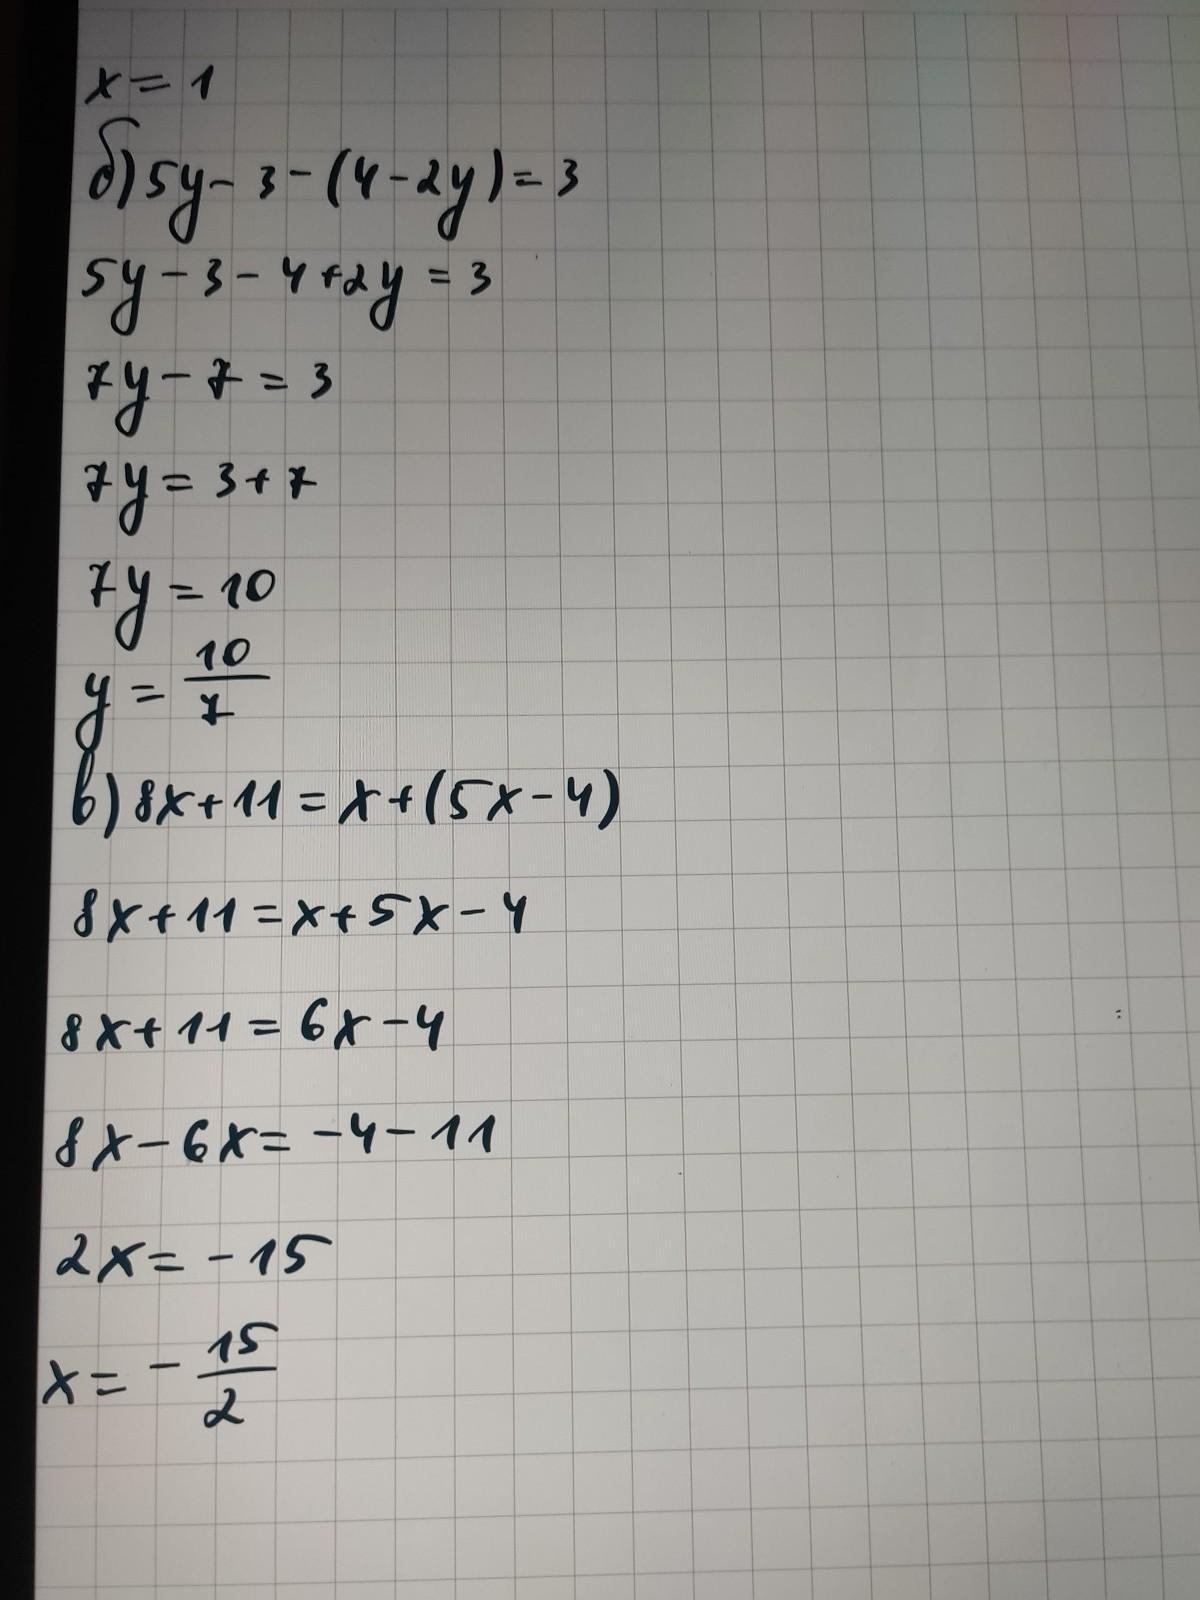 x = 1
б) 5y - 3 - (4 - 2y) = 3
5y - 3 - 4 + 2y = 3
7y - 7 = 3
7y = 3 + 7
7y = 10
y = 10/7
в) 8x + 11 = x + (5x - 4)
8x + 11 = x + 5x - 4
8x + 11 = 6x - 4
8x - 6x = -4 - 11
2x = -15
x = - 15/2